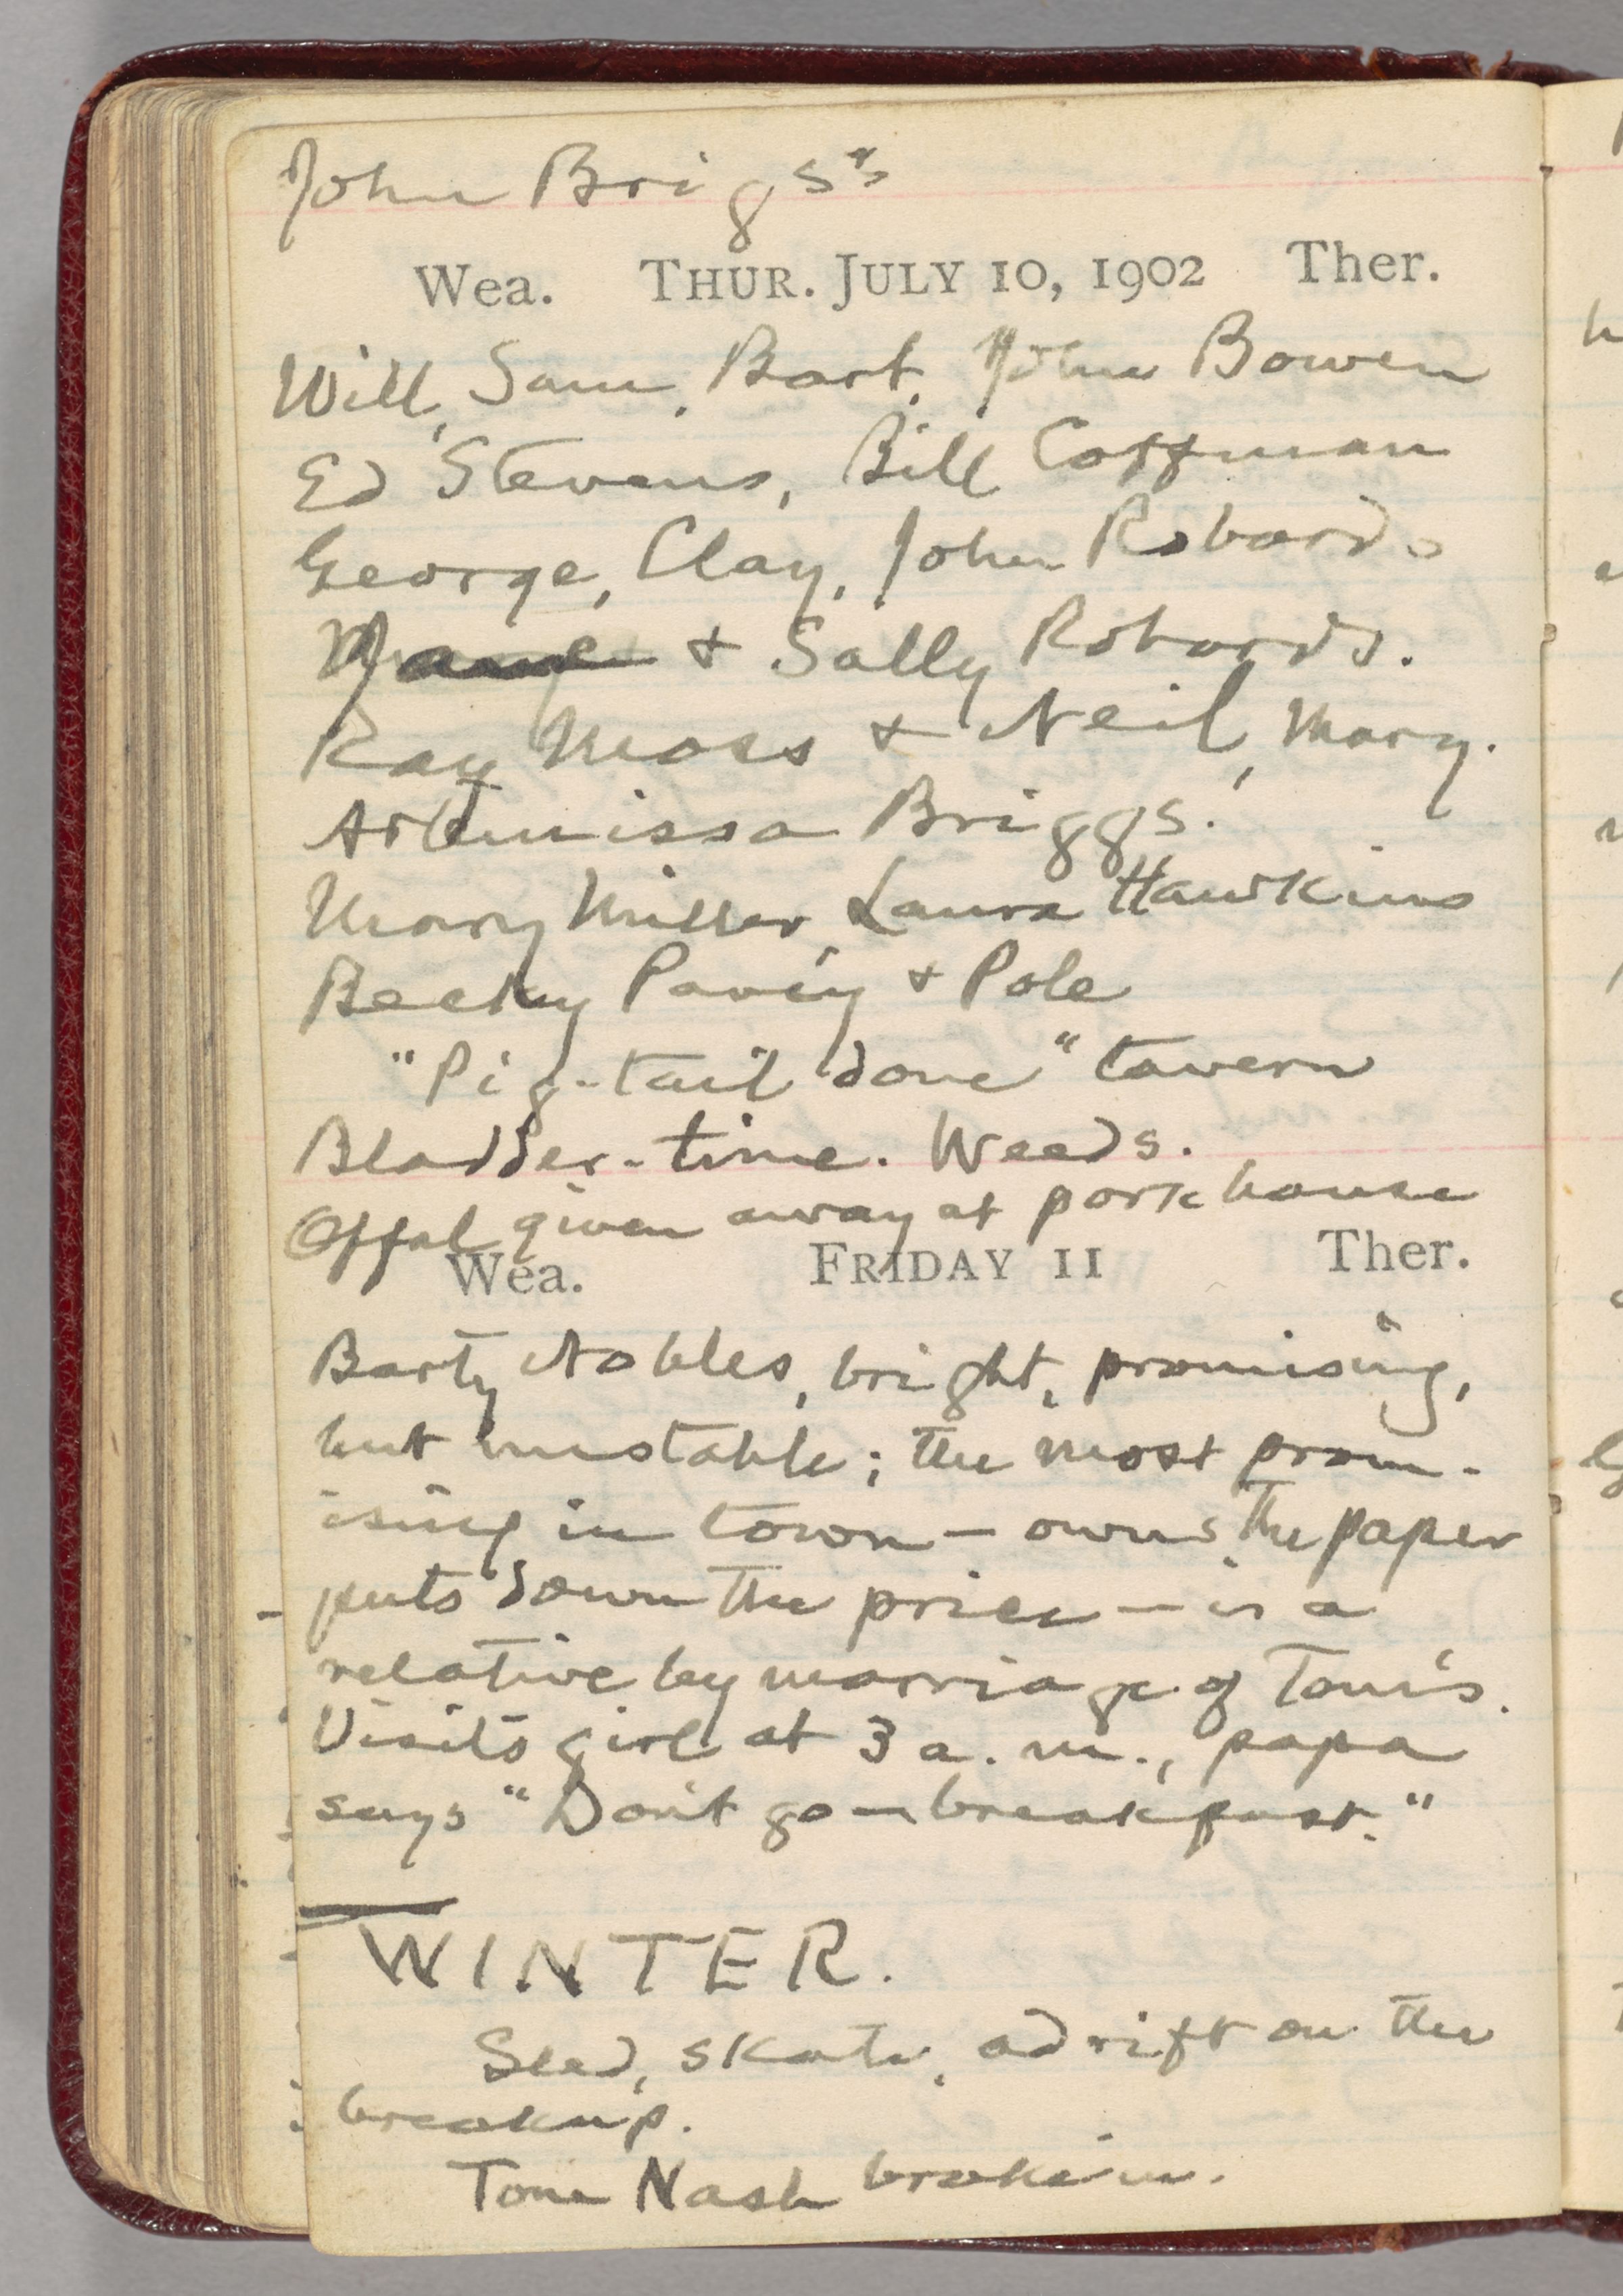 John Brigs's
Wea. THUR. JULY 10, 1902 Ther.
Will, Sam, Bart, John Bowen
Ed Stevens, Bill Coffman
George, Clay, John Robards
& Sally Robards.
Ray Moss & Neil, Mary.
Artemissa Briggs.
Mary Miller, Laura Hawkins
Becky Pavey & Pole
"Pig-tail done" tavern
Bladder-time. Weeds.
Offal given away at pork house
Wea. FRIDAY 11 Ther.
Barty Nobles, bright, promising,
but unstable; the most prom-
ising in town — owns the paper
puts down the price — is a
relative by marriage of Tom's.
Visits girl at 3 a.m., papa
says "Don't go — breakfast."
WINTER.
Sled, skate, adrift on the
breakup.
Tom Nash broke in.